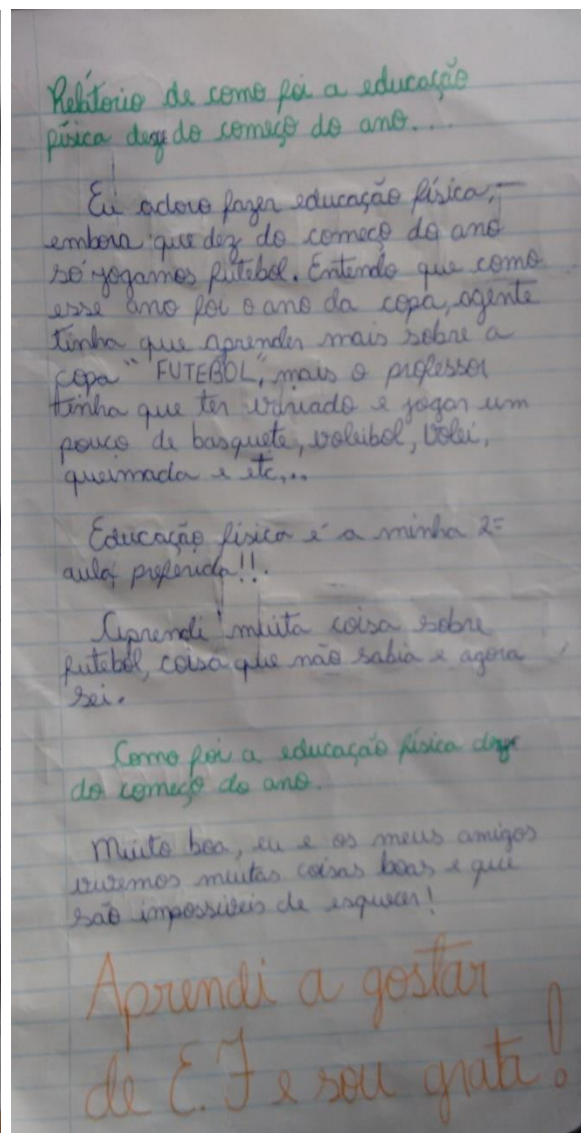 Relátorio de como foi a educação
física dez do começo do ano....
Eu adoro fazer educação física,
embora que dez do começo do ano
só jogamos futebol. Entendo que como
esse ano foi o ano da copa, agente
tinha que aprender mais sobre a
copa "FUTEBOL", mais o professor
tinha que ter variado e jogar um
pouco de basquete, voleibol, volei,
queimada e etc,...
Educação física é a minha 2=
aula preferida!!.
Aprendi muita coisa sobre
futebol, coisa que não sabia e agora
sei.
Como foi a educação física
do começo do ano.
Muito boa, eu e os meus amigos
vivemos muitas coisas boas e que
são impossiveis de esquecer!
Aprendi a gostar
de E.F e sou grata!